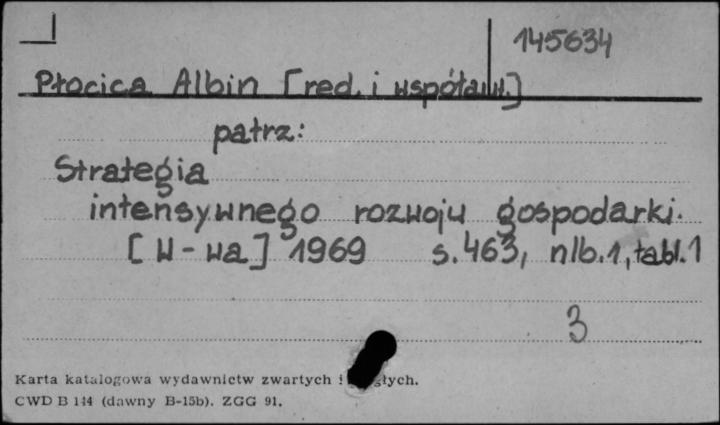 145634
Płocica Albin [red. i współaut.]
patrz:
Strategia
intensywnego rozwoju gospodarki.
[W-wa] 1969 s.463, nlb.1, tabl.1
3
Karta katalogowa wydawnictw zwartych
CWD B 144 (dawny B-15b). ZGG 91.